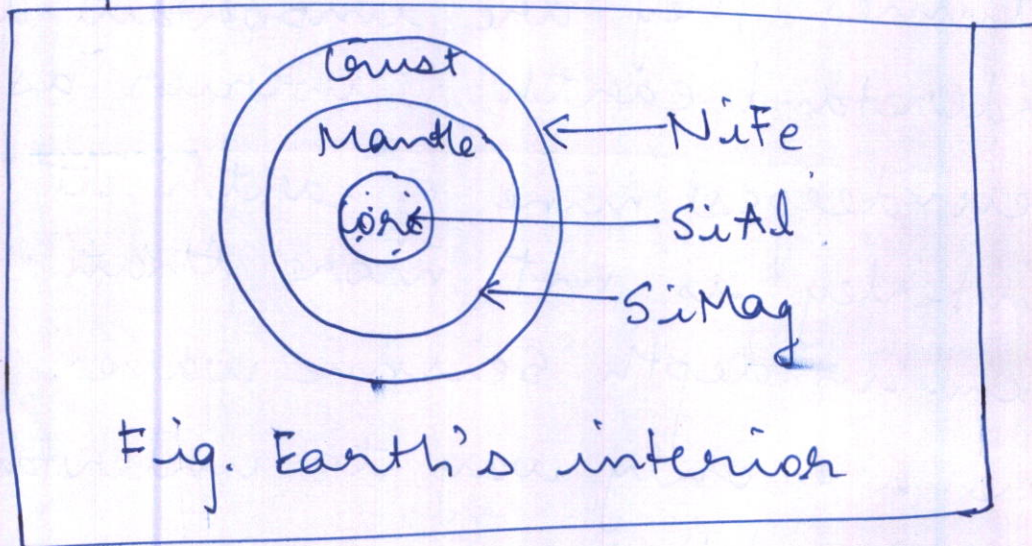 Crust
Mantle
NiFe
Core
SiAl
SiMag
Fig. Earth's interior